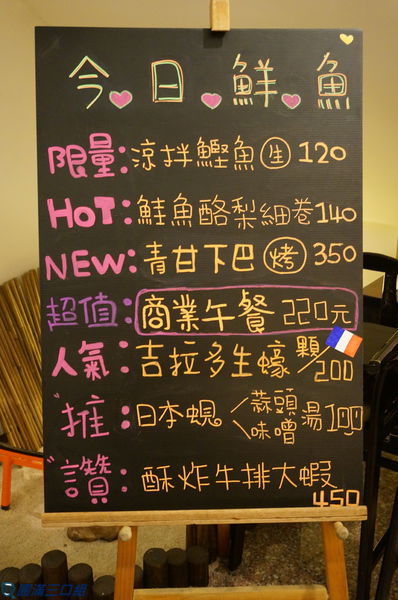 今日鮮魚
限量:涼拌鰹魚 生 120
HOT:鮭魚酪梨細卷140
NEW:青甘下巴 烤 350
超值:商業午餐 220元
人氣:吉拉多生蠔 顆/200
"推:日本蜆 /蒜頭 \味噌 湯100
"讚:酥炸牛排大蝦 450
圈滿三口組